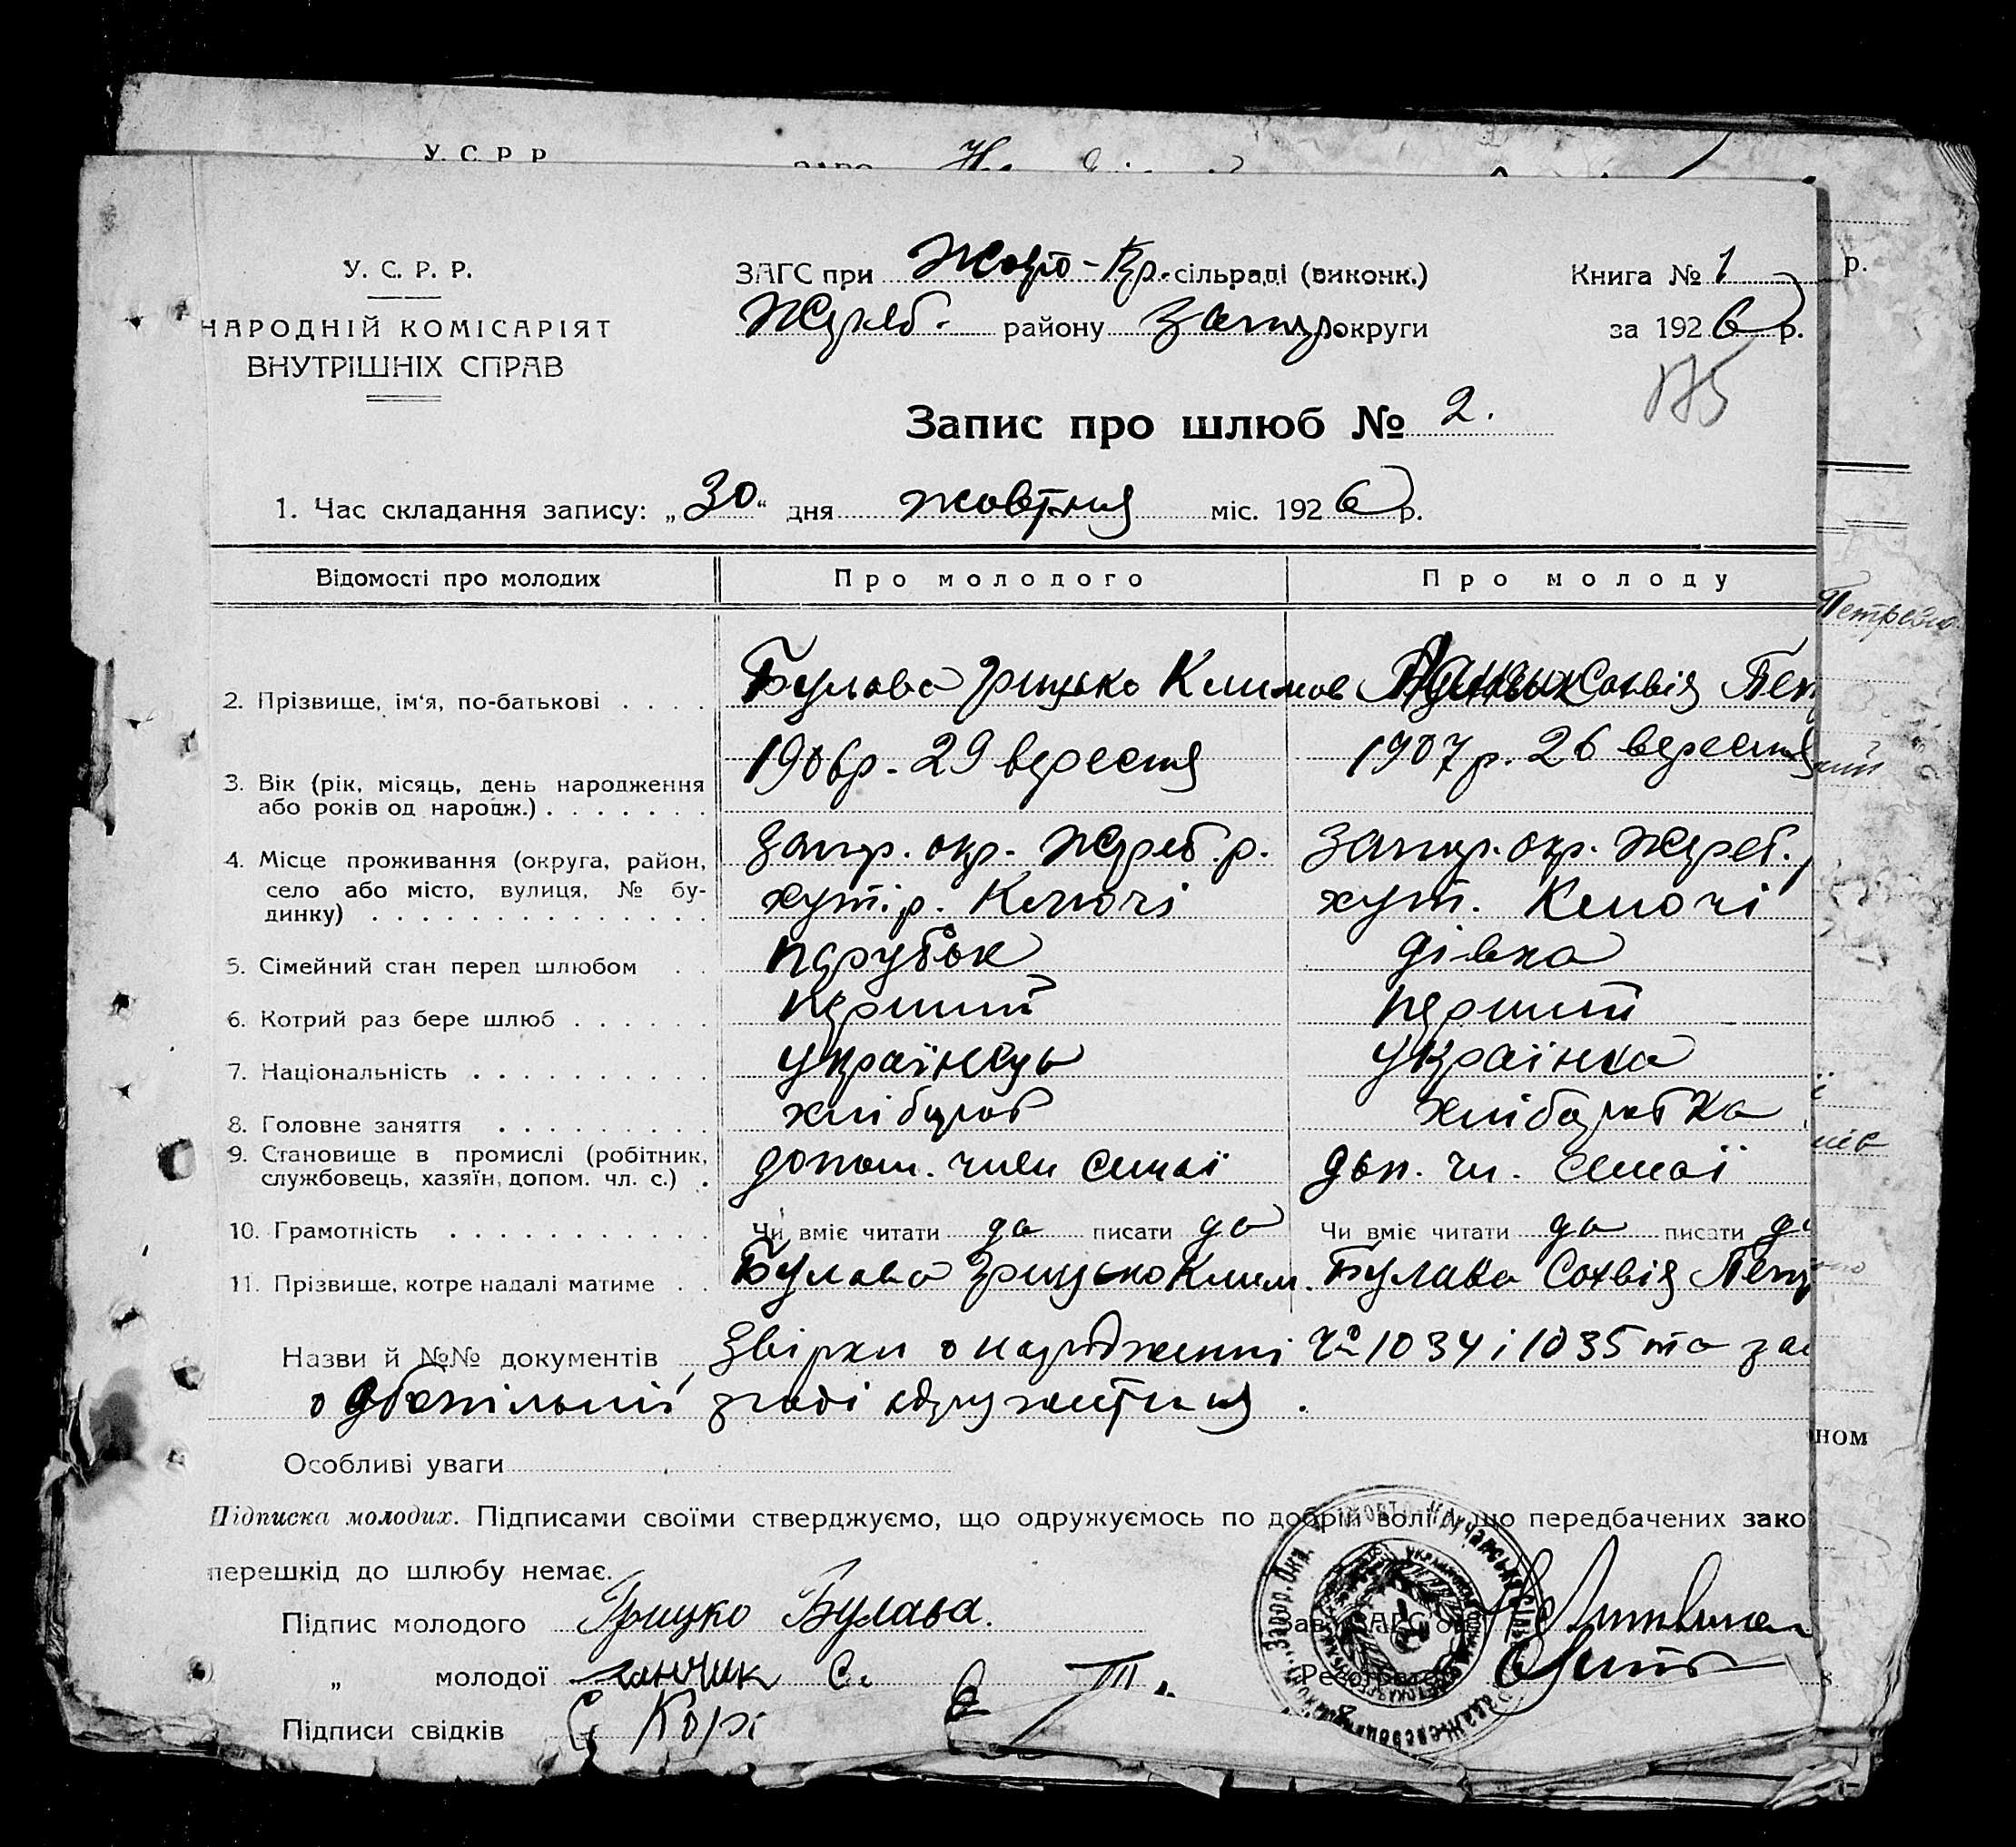 У. С. Р. Р.
У. С. Р. Р.
НАРОДНІЙ КОМІСАРІЯТ
ВНУТРІШНІХ СПРАВ
ЗАГС при Жовто-Кр. сільраді (виконк.)
Книга № 1
р.
Жереб. району Запор. округи
за 1926 р.
175
Запис про шлюб № 2.
1. Час складання запису: „30“ дня жовтня міс. 1926 р.
Відомості про молодих
Про молодого
Про молоду
2. Прізвище, ім‘я, по-батькові
Булава Грицько Климов
Сохвія Пет
3. Вік (рік, місяць, день народження або років од народж.)
1906 р. 29 вересня
1907 р. 26 вересня
4. Місце проживання (округа, район, село або місто, вулиця, № будинку)
Запор. окр. Жереб. р.
хутір. Ключі
Запор. окр. Жереб.
хут. Ключі
5. Сімейний стан перед шлюбом
парубок
дівка
6. Котрий раз бере шлюб
перший
перший
7. Національність
українець
українка
8. Головне заняття
хлібороб
хлібаробка
9. Становище в промислі (робітник, службовець, хазяїн, допом. чл. с.)
допом. член семьї
доп. чл. семьї
10. Грамотність
Чи вміє читати да писати да
Чи вміє читати да писати да
11. Прізвище, котре надалі матиме
Булава Грицько Клим.
Булава Сохвія Петр
Назви й №№ документів
о народженні № 1034 і 1035 та
згоді одруження.
Особливі уваги
Підписка молодих. Підписами своїми стверджуємо, що одружуємось по добрій волі й що передбачених зако
ном
перешкід до шлюбу немає.
Підпис молодого Грицко Булава.
„ молодої анчик С.
Підписи свідків
Зав. ЗАГС'ом
Реєстратор